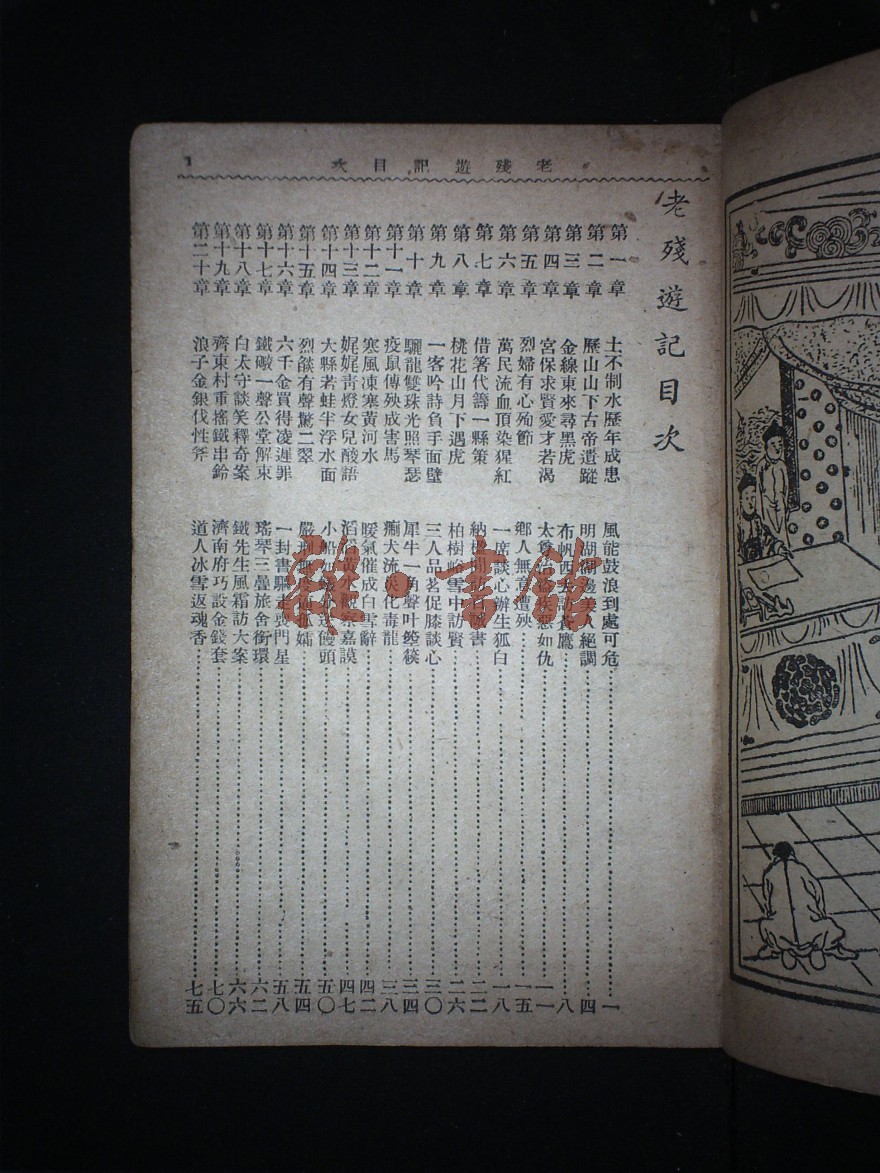 老殘遊記目次 1
老殘遊記目次
第一章 土不制水歷年成患 風能鼓浪到處可危 一
第二章 歷山山下古帝遺蹤 明湖湖邊美人絕調 四
第三章 金線東來尋黑虎 布帆西去訪蒼鷹 八
第四章 宮保求賢愛才若渴 太尊治盜疾惡如仇 一一
第五章 烈婦有心殉節 鄉人無意遭殃 一五
第六章 萬民流血頂染猩紅 一席談心辦生狐白 一八
第七章 借箸代籌一縣策 納楹閒訪百城書 二二
第八章 桃花山月下遇虎 柏樹峪雪中訪賢 二六
第九章 一客吟詩負手面壁 三人品茗促膝談心 三〇
第十章 驪龍雙珠光照琴瑟 犀牛一角聲叶箜篌 三四
第十一章 疫鼠傳殃成害馬 犬流災化毒龍 三八
第十二章 寒風凍塞黃河水 暖氣催成白雪辭 四二
第十三章 娓娓靑燈女兒酸語 滔滔黃水觀察嘉謨 四七
第十四章 大縣若蛙半浮水面 小船如蟻分送饅頭 五〇
第十五章 烈燄有聲驚二翠 嚴刑無度逼孤孀 五四
第十六章 六千金買得凌遲罪 一封書驅走喪門星 五八
第十七章 鐵礮一聲公堂解索 瑤琴三疊旅舍銜環 六二
第十八章 白太守談笑釋奇案 鐵先生風霜訪大案 六六
第十九章 齊東村重搖鐵串鈴 濟南府巧設金錢套 七〇
第二十章 浪子金銀伐性斧 道人冰雪返魂香 七五
雜·書館